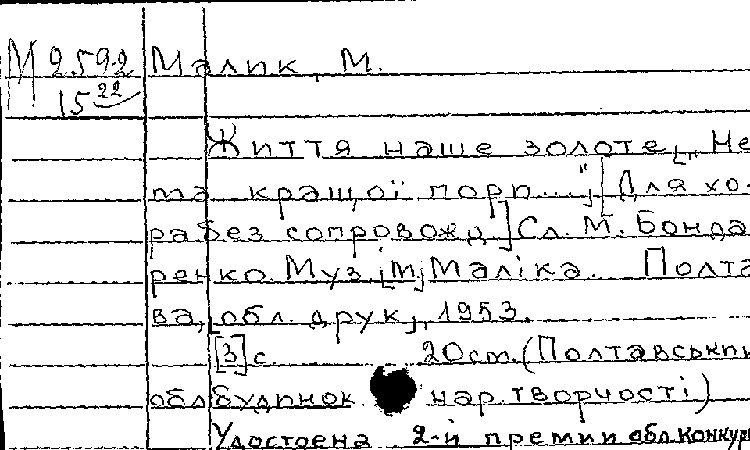 М 2.592 Малик, М.
15 22
Життя наше золоте, [„Не-
ма кращої пори..."] Для хо-
ра без сопровожд.] Сл. М. Бонда-
ренко. Муз. [М.] Маліка. Полта-
ва, [обл. друк.], 1953.
[3] с. 20 см. (Полтавськи
обл будинок нар. творчості)
Удостоена 2-й премии обл. конкур